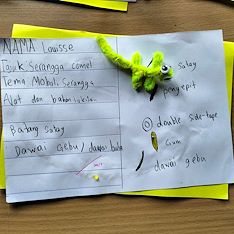 NAMA Louisse
Tajuk Serangga comel
Tema Mobail Serangga
Alat dan bahan
Batang satay
Dawai gebu / dawai bulu
satay
penyepit
double side-tape
Gum
dawai gebu